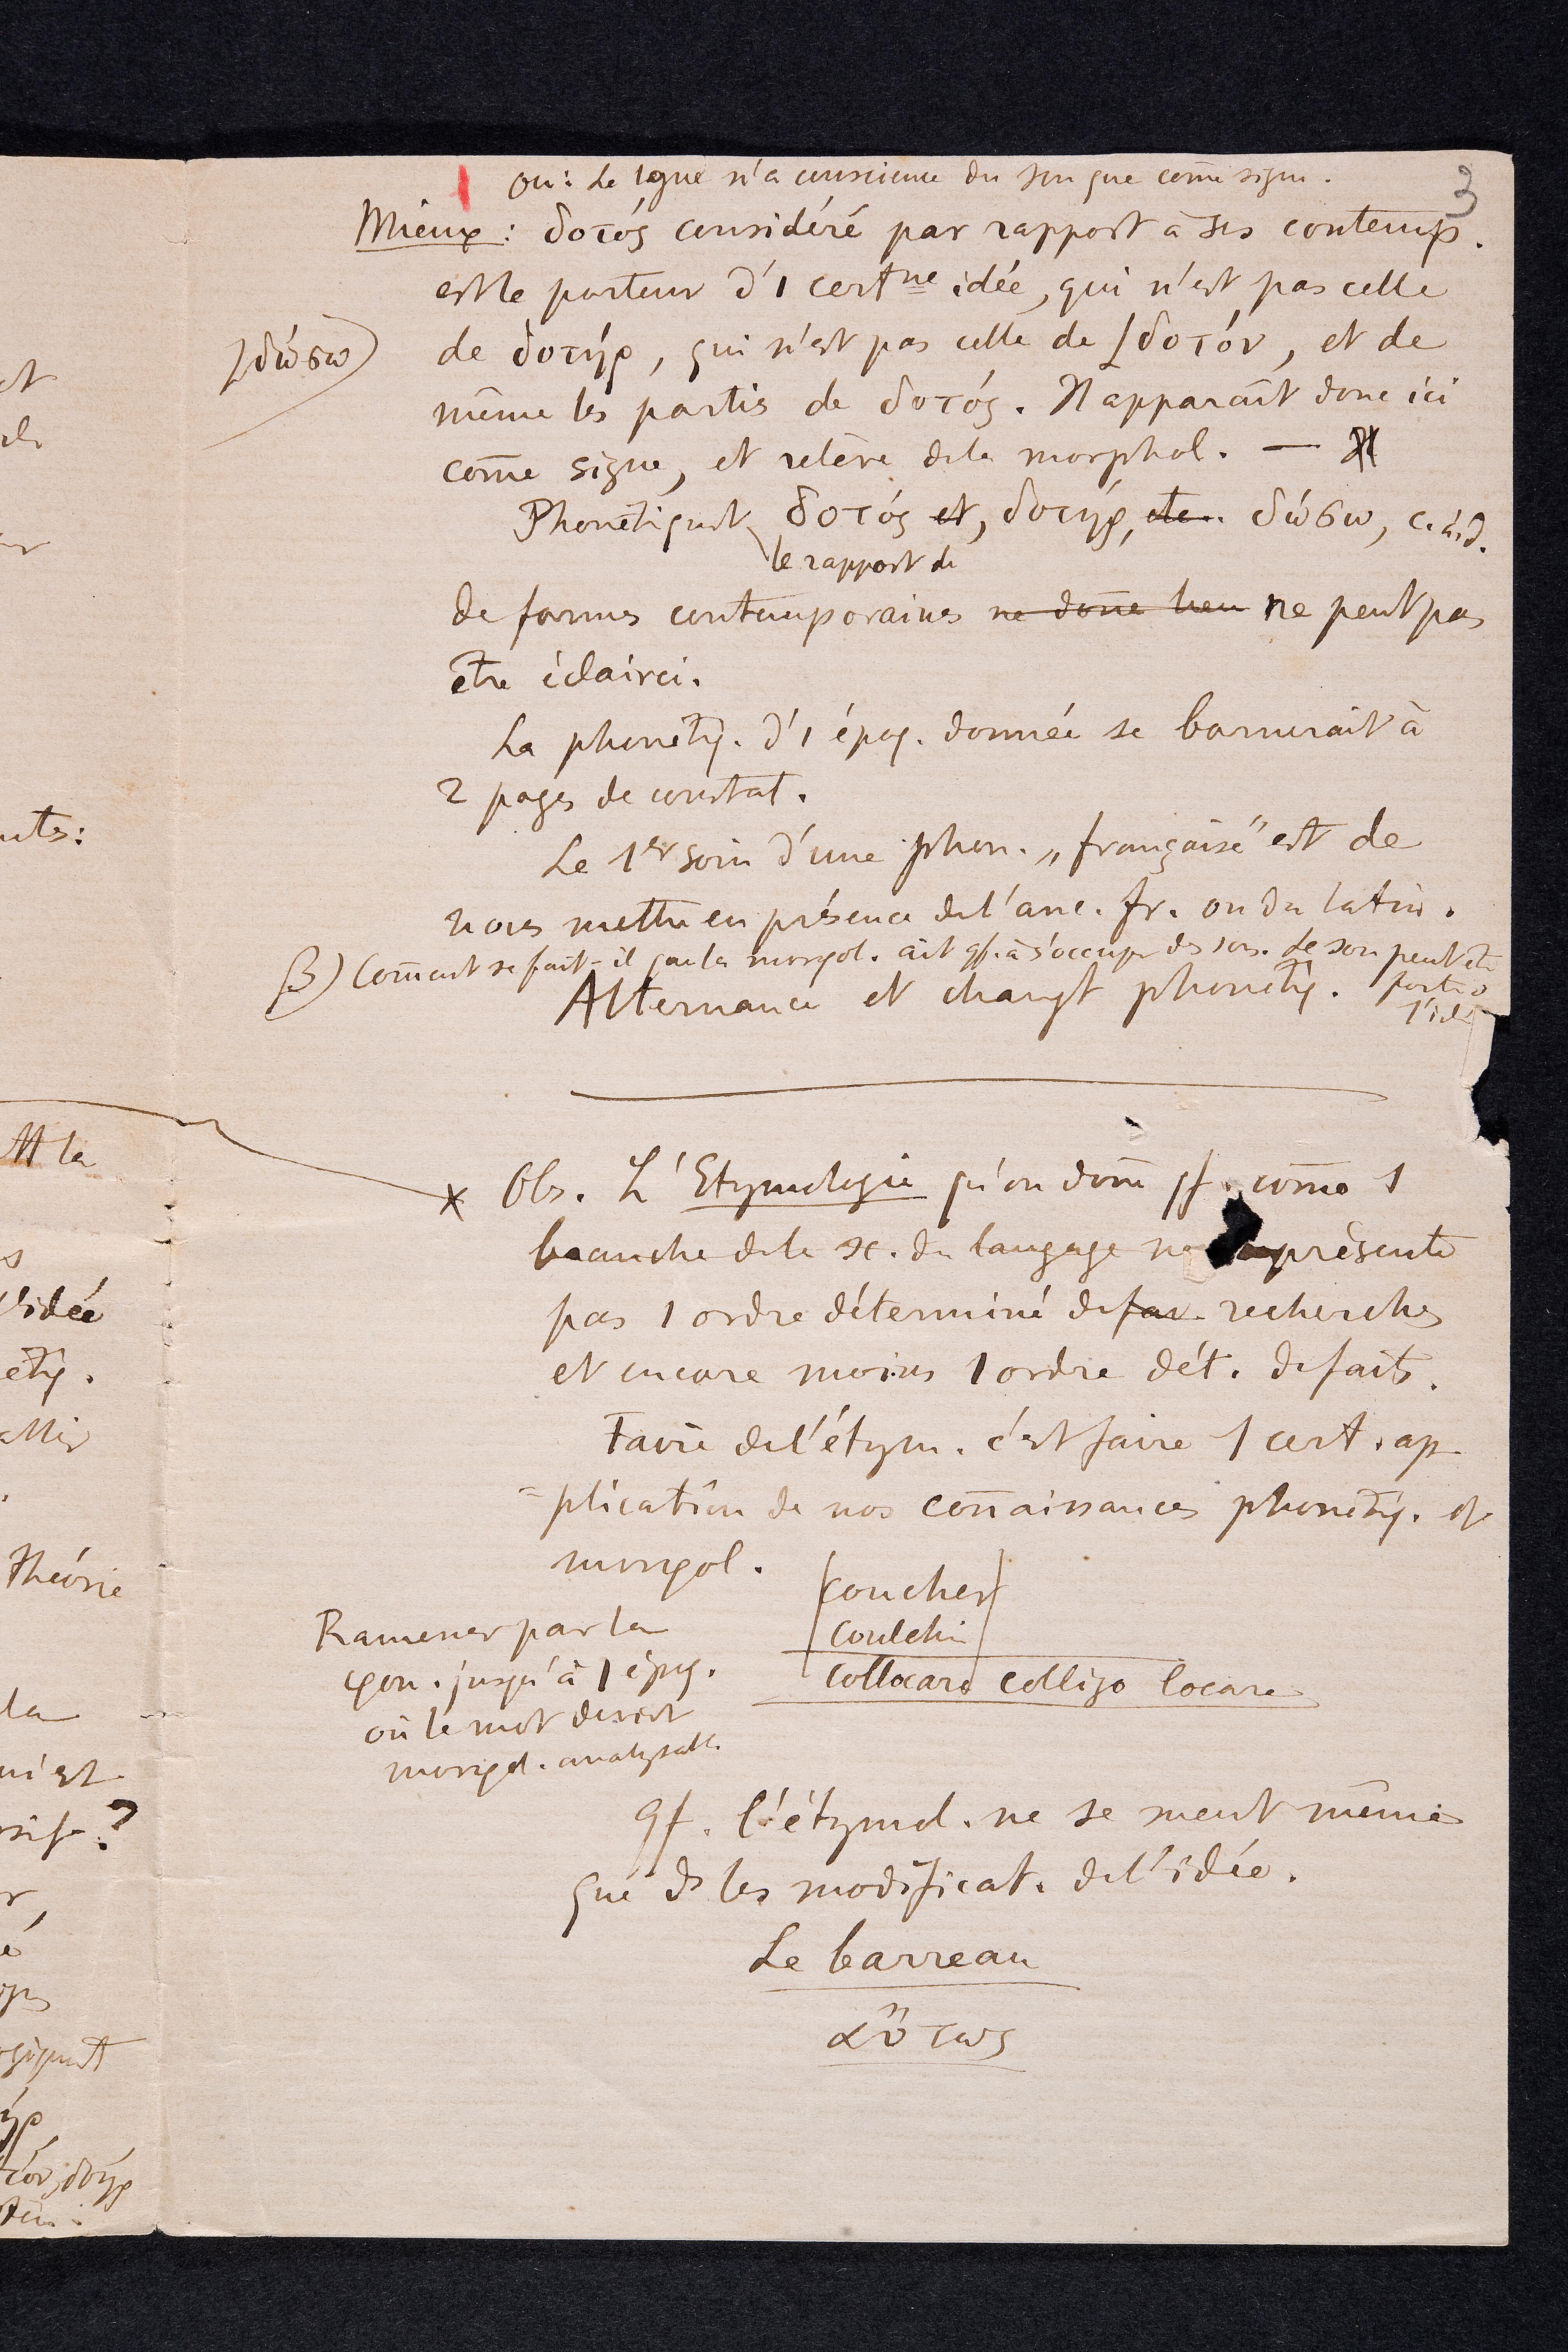 ou : La lgue n'a conscience du son que come signe.
3
Mieux : δοτός considéré par rapport à ses contemp.
est le porteur d'1 certne idée, qui n'est pas celle
de δοτήρ, qui n'est pas celle de δοτόν, et de
δώσω
même les parties de δοτός. Il apparaît donc ici
come signe, et relève de la morphol. —
Phonétiqnt δοτός et, δοτήρ, etc. δώσω, c.à.d.
le rapport de
de formes contemporaines ne done lieu ne peut pas
être éclairci.
La phonétq. d'1 époq. donnée se bornerait à
2 pages de constat.
Le 1er soin d'une phon. „française" est de
nous mettre en présence de l'anc. fr. ou du latin.
β) Coment se fait-il que la morφol. ait qf. à s'occuper des sons. Le son peut être
porteur
l'idée
Alternance et changt phonétq.
x Obs. L'Etymologie qu'on done qf. come 1
branche de la sc. du langage ne représente
pas 1 ordre déterminé de fai recherches
et encore moins 1 ordre dét. de faits.
Faire de l'étym. c'est faire 1 cert. ap-
=plication de nos conaissances phonétq. et
morφol.
coucher
coulchier
collocare colligo locare
Ramener par la
φon. jusqu'à 1 époq.
où le mot devient
morφol. analysable.
qf. l'étymol. ne se meut même
que ds les modificat. de l'idée.
Le barreau
αὔτως
et
nts:
la
l'idée
étq.
Théorie
la
?